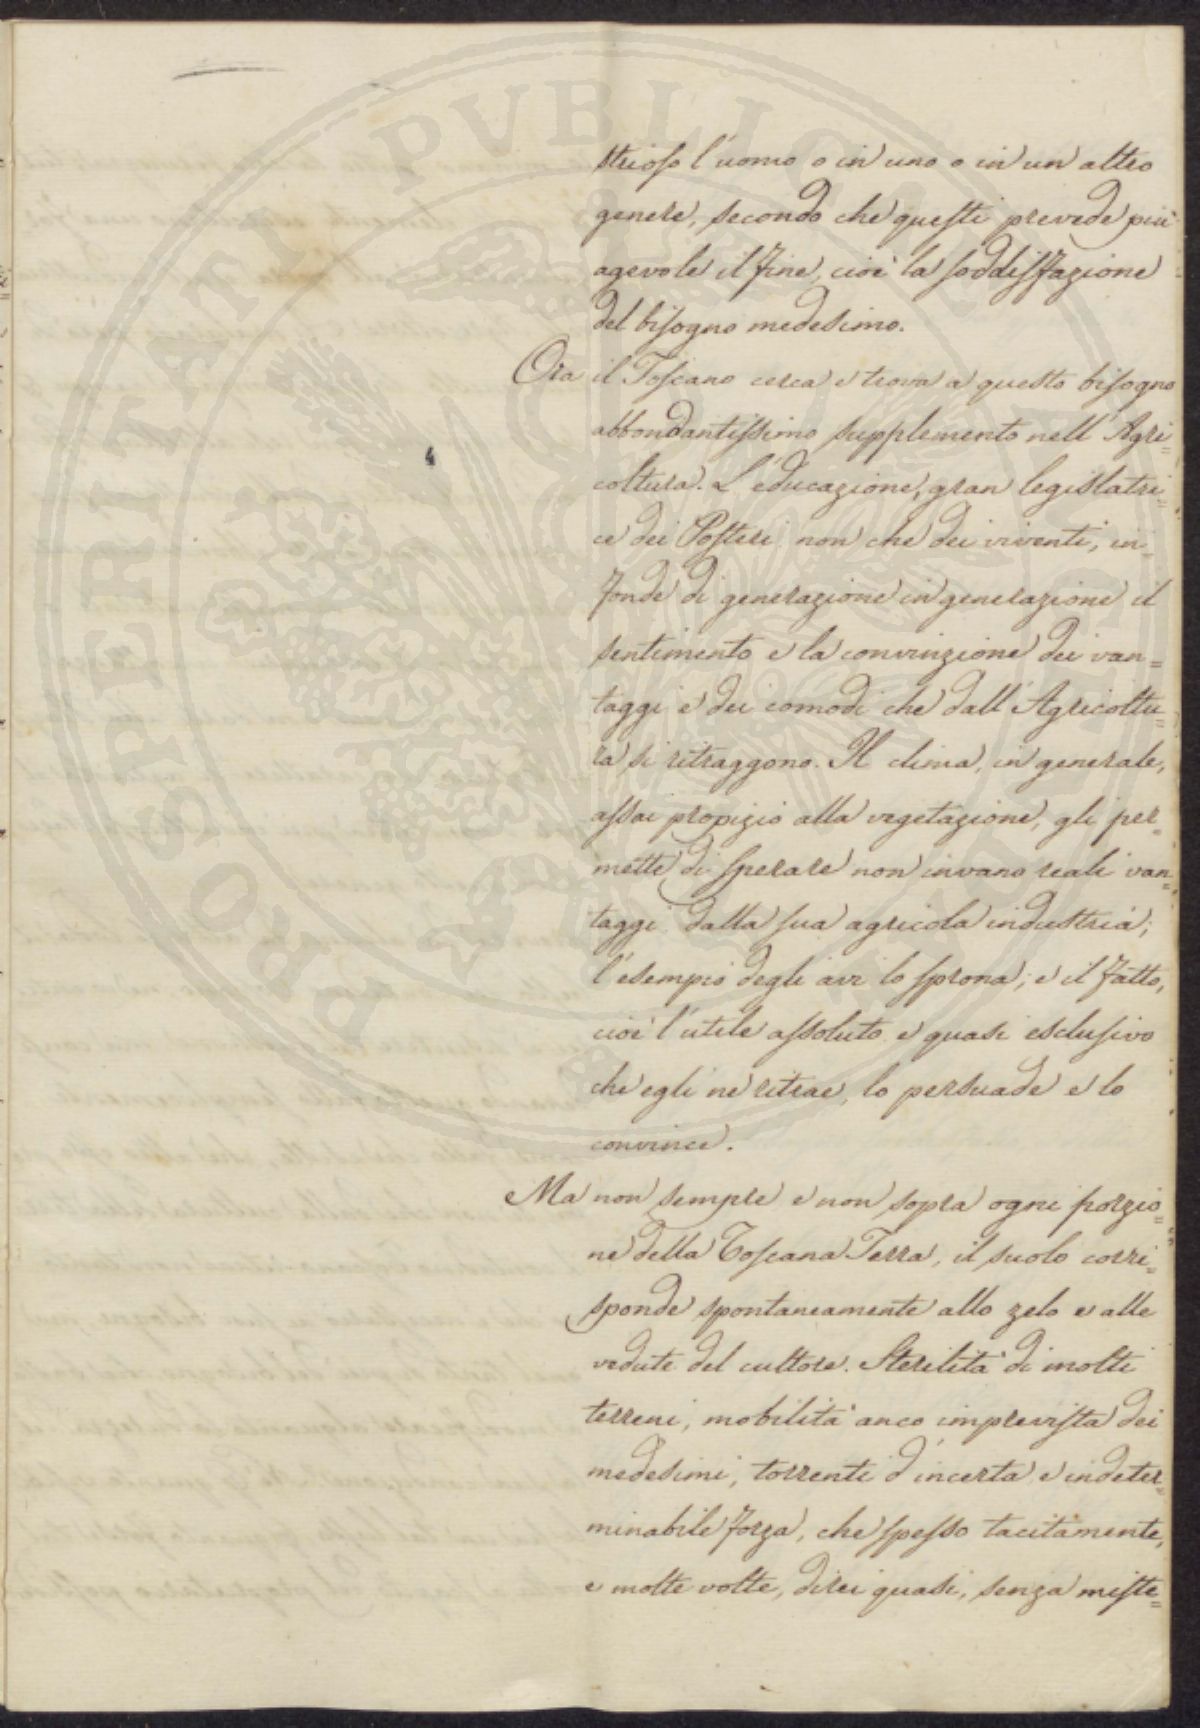 strioso l'uomo o in uno o in un altro
genere, secondo che questi prevede più
agevole il fine, cioè la soddisfazione
del bisogno medesimo.
Ora il Toscano cerca e trova a questo bisogno
abbondantissimo supplemento nell'Agri=
coltura. L'educazione, gran legislatri=
ce dei Posteri non che dei viventi, in=
fonde di generazione in generazione il
sentimento e la convinzione dei van=
taggi e dei comodi che dall'Agricoltu=
ra si ritraggono. Il clima, in generale,
assai propizio alla vegetazione, gli per=
mette di sperare non invano reali van=
taggi dalla sua agricola industria;
l'esempio degli avi lo sprona; e il fatto,
cioè l'utile assoluto e quasi esclusivo
che egli ne ritrae, lo persuade e lo
convince.
Ma non sempre e non sopra ogni porzio=
ne della Toscana Terra, il suolo corri=
sponde spontaneamente allo zelo e alle
vedute del cultore. Sterilità di molti
terreni, mobilità anco imprevista dei
medesimi, torrenti d'incerta e indeter=
minabile forza, che spesso tacitamente,
e molte volte, direi quasi, senza miste=
PROSPERITATI PVBLICAE